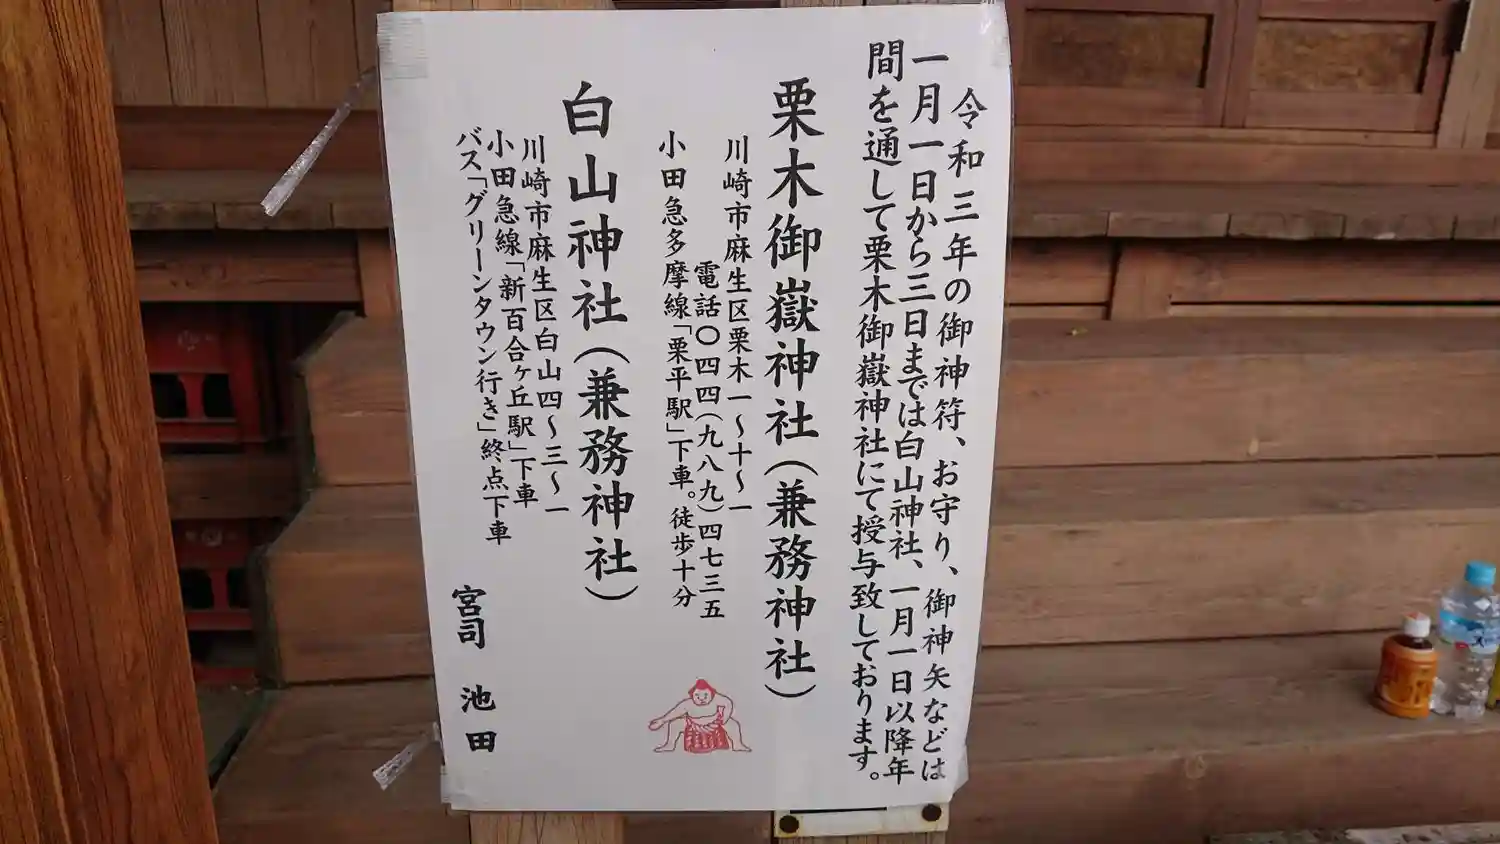 令和三年の御神符、お守り、御神矢などは
一月一日から三日までは白山神社、一月一日以降年
間を通して栗木御嶽神社にて授与致しております。
栗木御嶽神社（兼務神社）
川崎市麻生区栗木一〜十〜一
電話〇四四（九八九）四七三五
小田急多摩線「栗平駅」下車。徒歩十分
白山神社（兼務神社）
川崎市麻生区白山四〜三〜一
小田急線「新百合ヶ丘駅」下車
バス「グリーンタウン行き」終点下車
宮司 池田